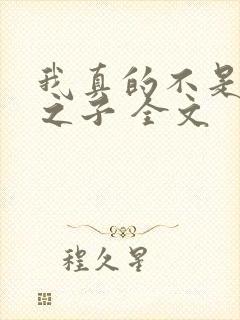 我真的不是
之子 全文
程久星